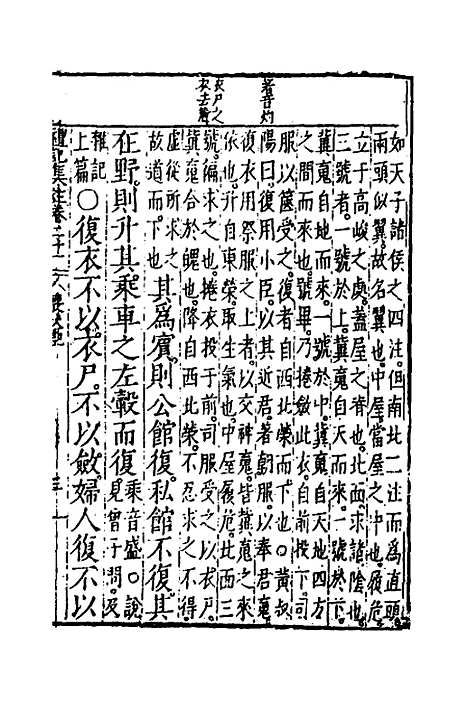 著音灼
衣尸之
衣去聲
如天子諸侯之四注但南北二注而爲直頭
兩頭似翼故名翼也中屋當屋之中也履危
立于高峻之處蓋屋之脊也北面求諸陰也
三號者一號於上冀䰟自天而來一號於下
冀䰟自地而來一號於中冀䰟自天地四方
之間而來也號畢乃捲斂此衣自前投下司
服以篋受之復者自西北榮而下也○黃叔
陽曰復用小臣以其近君著朝服以奉君䰟
復衣用祭服之上者以交神䰟皆冀䰟之來
依也升自東榮取生氣也中屋履危北面三
號徧求之也捲衣投于前司服受之以衣尸
冀䰟合於魄也降自西北榮不忍求之不得
虛從所求之
故道而下也其爲賓則公館復私館不復其
在野則升其乘車之左轂而復乘音盛○說
見曾子問及
雜記
上篇○復衣不以衣尸不以斂婦人復不以
禮記集註卷二十二 喪大記 三